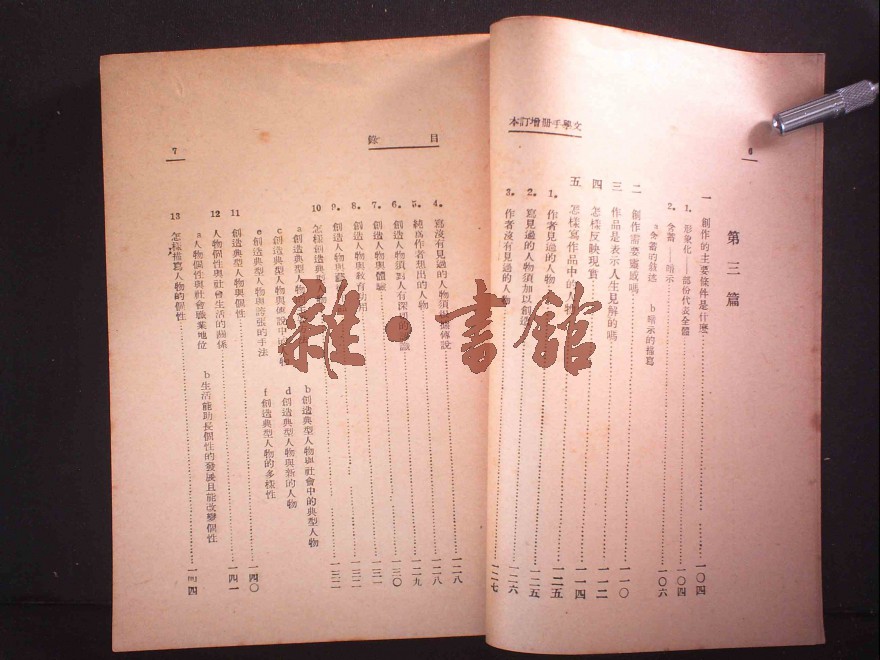 文學手冊增訂本
6
第三篇
一 創作的主要條件是什麼 一〇四
1. 形象化——部份代表全體 一〇四
2. 含蓄——暗示 一〇六
a 含蓄的敍述 b 暗示的描寫
二 創作需要靈感嗎 一一〇
三 作品是表示人生見解的嗎 一一二
四 怎樣反映現實 一一四
五 怎樣寫作品中的人物 一二五
1. 作者見過的人物 一二五
2. 寫見過的人物須加以創造 一二六
3. 作者沒有見過的人物 一二七
目錄
7
4. 寫沒有見過的人物須根據傳說 一二八
5. 純爲作者想出的人物 一二八
6. 創造人物須對人有深切的認識 一二九
7. 創造人物與體驗 一三〇
8. 創造人物與教育功用 一三一
9. 創造人物與 一三二
10 怎樣創造典型人物 一三二
a 創造典型人物 b 創造典型人物與社會中的典型人物
c 創造典型人物與傳說中的人物 d 創造典型人物與新的人物
e 創造典型人物與誇張的手法 f 創造典型人物的多樣性
11 創造典型人物與個性 一四〇
12 人物個性與社會生活的關係 一四一
a 人物個性與社會職業地位 b 生活能助長個性的發展且能改變個性
13 怎樣描寫人物的個性 一四四
雜·書館